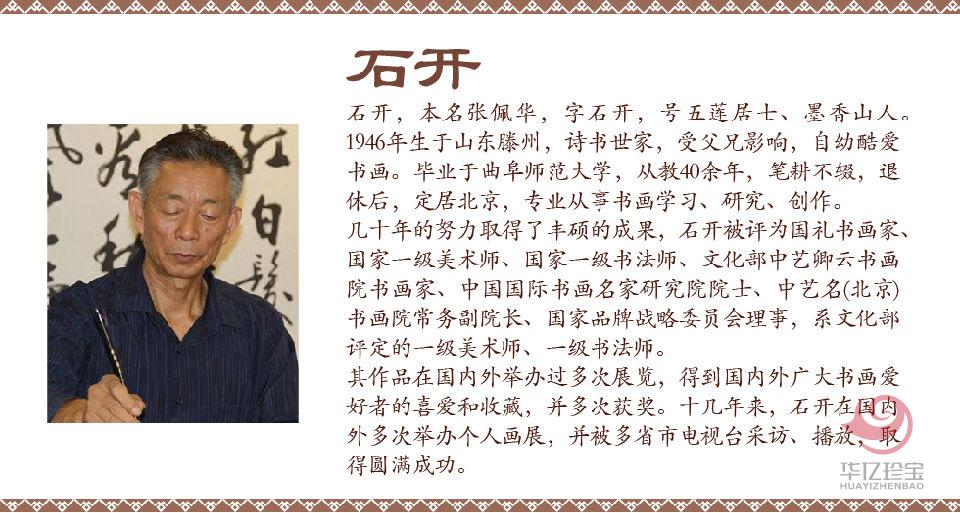 石开
石开，本名张佩华，字石开，号五莲居士、墨香山人。
1946年生于山东滕州，诗书世家，受父兄影响，自幼酷爱
书画。毕业于曲阜师范大学，从教40余年，笔耕不缀，退
休后，定居北京，专业从事书画学习、研究、创作。
几十年的努力取得了丰硕的成果，石开被评为国礼书画家、
国家一级美术师、国家一级书法师、文化部中艺卿云书画
院书画家、中国国际书画名家研究院院士、中艺名(北京)
书画院常务副院长、国家品牌战略委员会理事，系文化部
评定的一级美术师、一级书法师。
其作品在国内外举办过多次展览，得到国内外广大书画爱
好者的喜爱和收藏，并多次获奖。十几年来，石开在国内
外多次举办个人画展，并被多省市电视台采访、播放，取
得圆满成功。
华亿珍宝
HUAYIZHENBAO